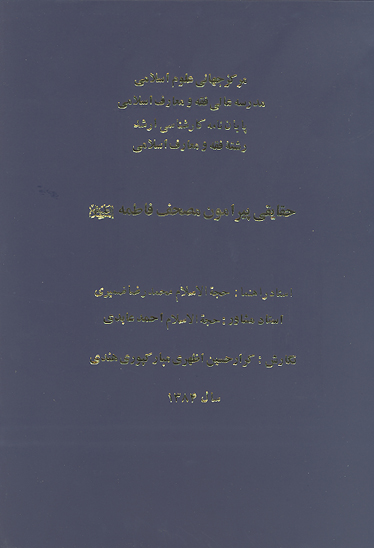 مرکز جهانی علوم اسلامی
مدرسه عالی فقه و معارف اسلامی
پایان نامه کارشناسی ارشد
رشته فقه و معارف اسلامی
حقایقی پیرامون مصحف فاطمه
استاد راهنما : حجة الاسلام محمدرضا نصیری
استاد مشاور : حجة الاسلام احمد عابدی
نگارش : کرار حسین اظهری
سال ۱۳۸۴